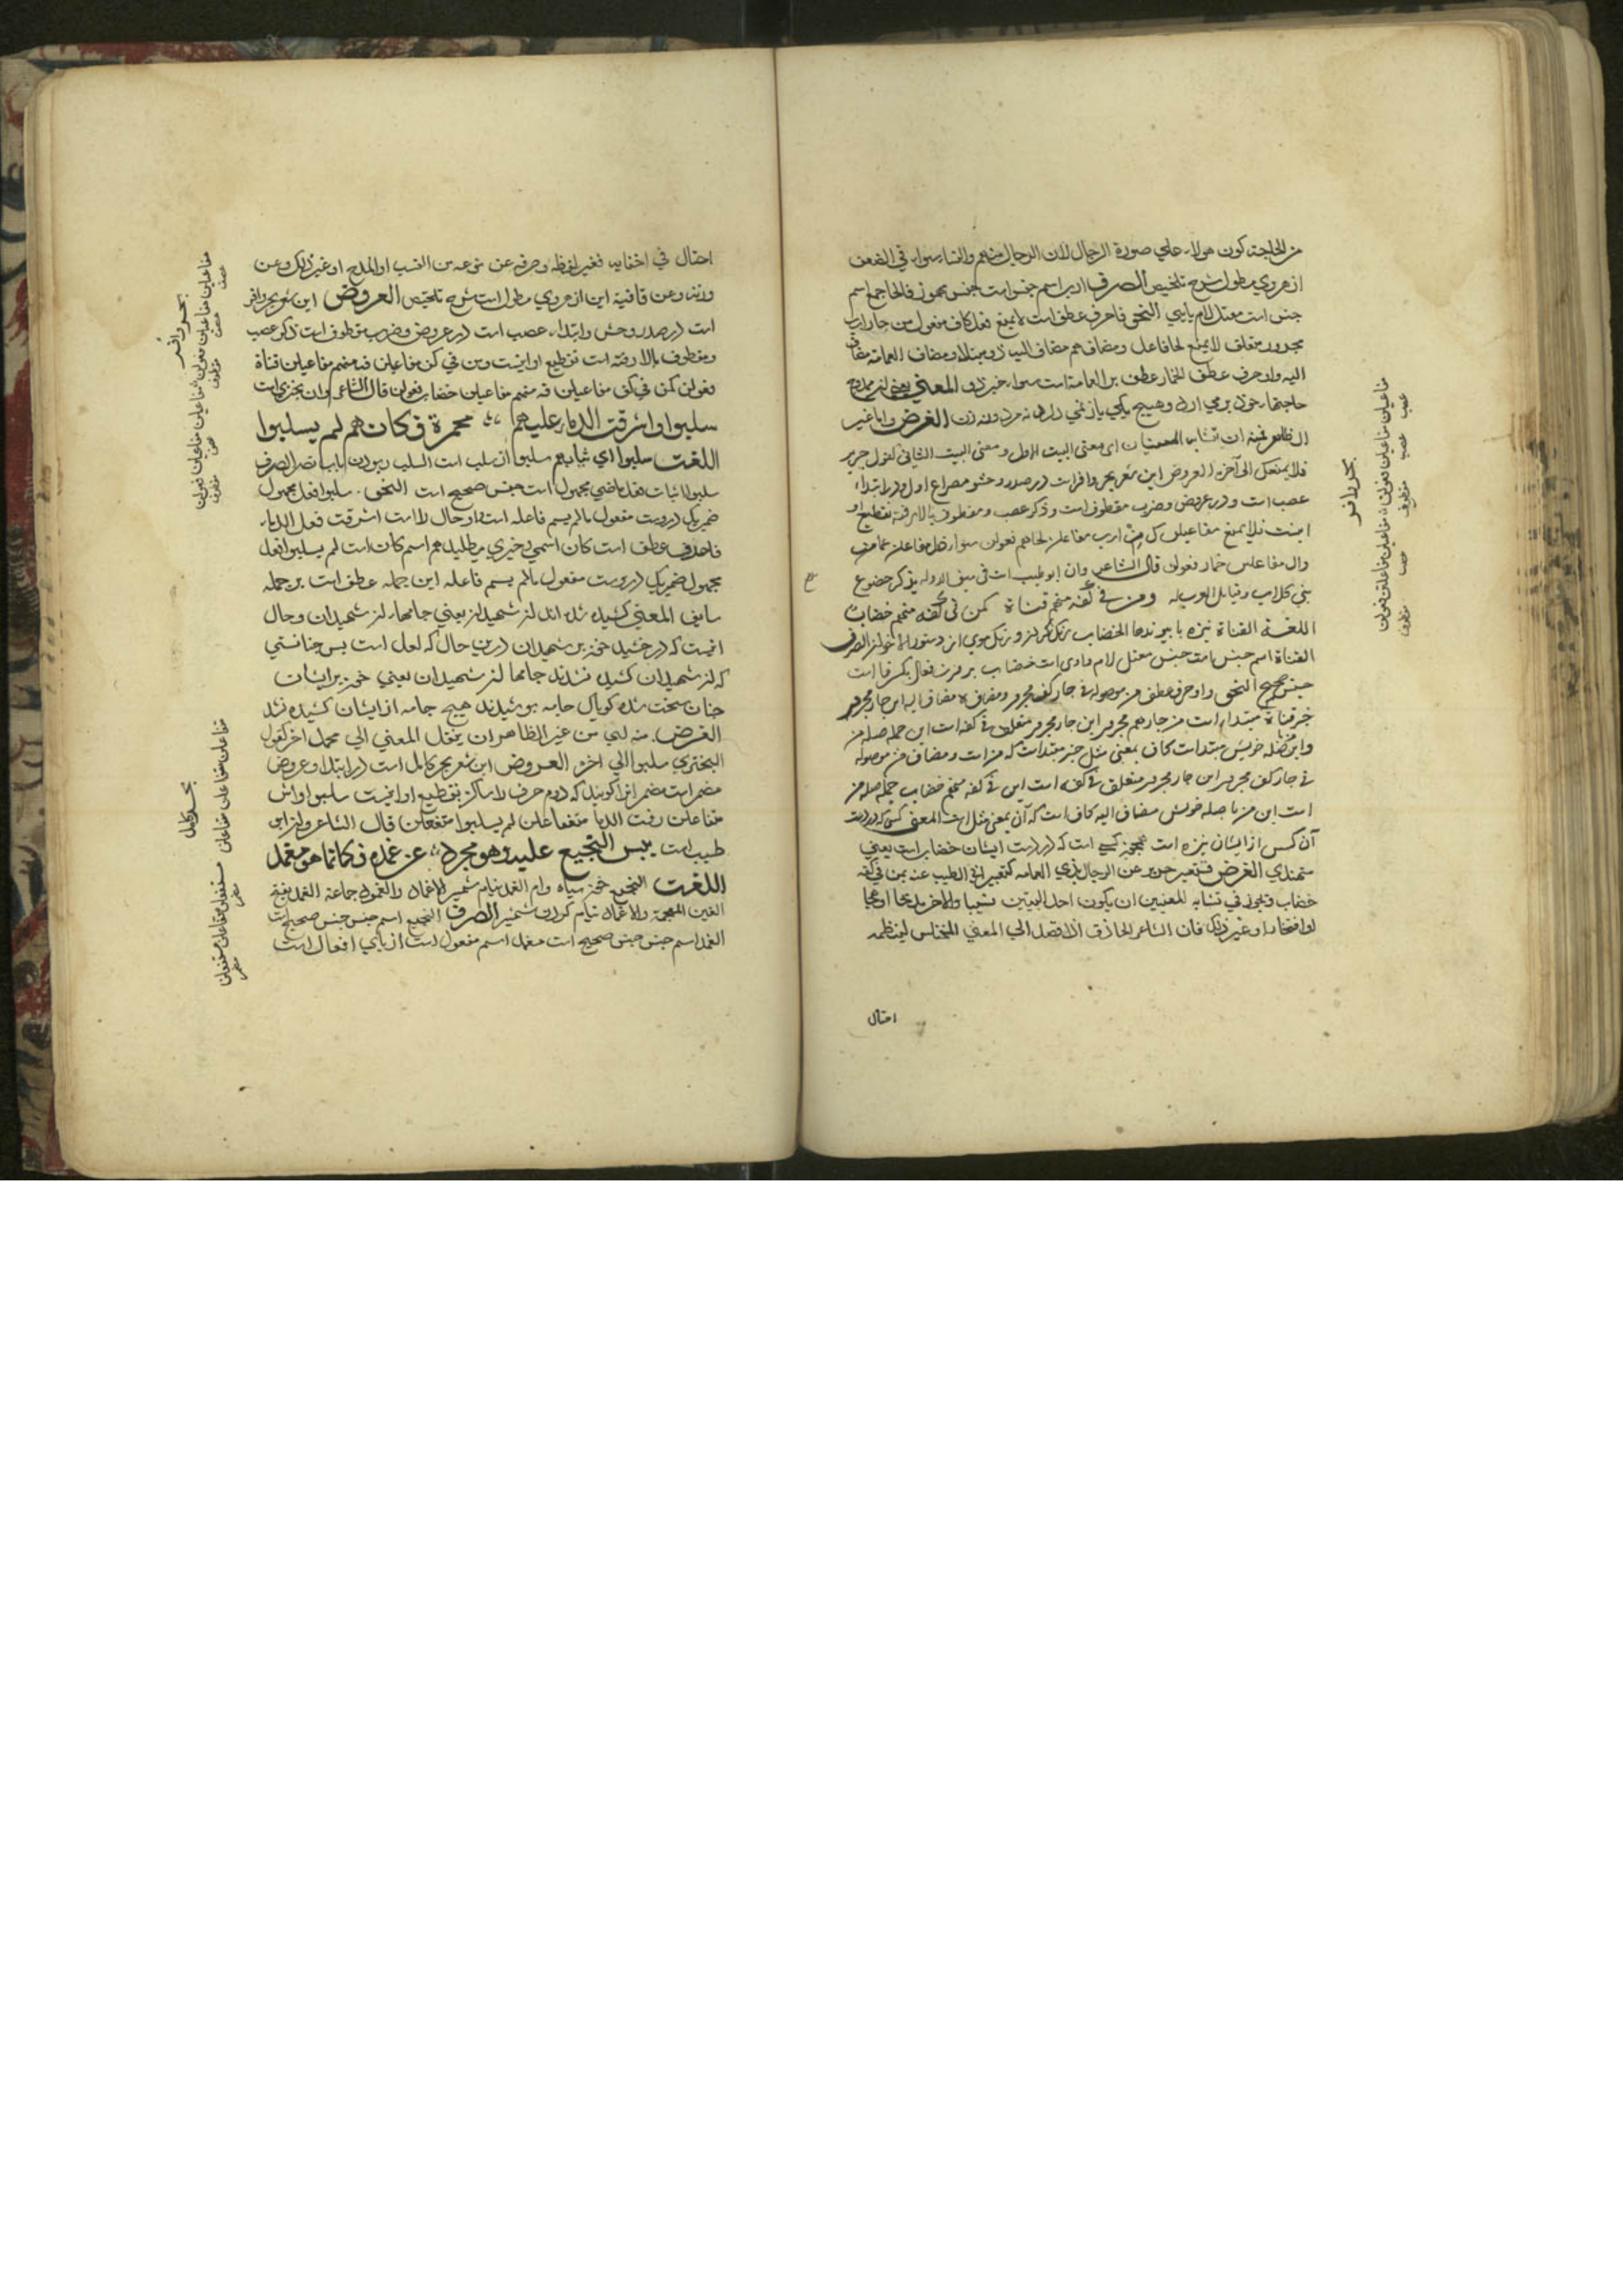 من الحاجة كون هولاء علي صورة الرجال لان الرجال منهم والنساء سواء في الضعف
از هروي مطول شرح تلخيص الصرف ارب اسم جنس است جنس مهموز فا لحا جمع اسم
جنس است معتل لام يايي النحو فا حرف عطف است لا يمنع فعل كاف مفعول من جار ارب
مجرور متعلق لا يمنع لحا فاعل ومضاف هم مضاف اليه ذو مبتلا ومضاف العمامة مضاف
اليه واو حرف عطف الخمار عطف بر العمامة است سواء خبر ذو المعني يعني
حاجتها
الظاهر فمنه ان تشابه المعنيان اى معنى البيت الاول ومعنى البيت الثاني كقول جرير
فلا يمنعك الى آخره العروض اين شعر بحر وافر است در صدر وحشو مصراع اول ودر ابتداء
عصب است و در عروض وضرب مقطوف است وذكر عصب ومقطوف بالا رفته تقطيع او
اينست فلا يمنع مفاعيلن ك من ارب مفاعلتن لحاهم فعولن سواء ذل مفاعلتن عمامة
وال مفاعلتن خمار فعولن قال الشاعر وان ابو طيب است في سيف الدوله يذكر خضوع
بني كلاب وقبايل العرب له ومن في كفه منهم قناة كمن في كفه منهم خضاب
اللغة القناة نيزه با پيوندها الخضاب
القناة اسم جنس است جنس معتل لام واوى است خضاب بر وزن فعال بكسر فا است
جنس صحيح النحو واو حرف عطف من موصوله في جار كف مجرور ومضاف ه مضاف اليه اين جار مجرور
خبر قناة مبتداء است من جار هم مجرور اين جار مجرور متعلق في كفه است اين جمله صله من
واين من با صله خويش مبتدا است كاف بمعنى مثل خبر مبتدا است كه من است ومضاف من موصوله
في جار كف مجرور اين جار مجرور متعلق في كفه است اين في كفه منهم خضاب جمله صله من
است اين من با صله خويش مضاف اليه كاف است كه آن بمعنى مثل است المعنى كسى كه در دست
آن كس از ايشان نيزه است همچون كسى است كه در دست ايشان خضاب است يعني
الغرض فتعبير جرير عن الرجال بذي العمامه كتعبير ابي الطيب عنه بمن في كفه
خضاب ويجوز في تشابه المعنيين ان يكون احد البيتين نسيبا والاخر مديحا او هجا
او افتخارا او غير ذلك فان الشاعر الحاذق اذا قصد الى المعني المختلس لينظمه
احتال
بحر وافر
مفاعيلن مفاعيلن فعولن مفاعيلن مفاعلتن فعولن
عصب عصب مقطوف عصب مقطوف
احتال في اخفايه فغير لفظه وصرفه عن نوعه من النسب او المدح او غير ذلك وعن
وزنه وعن قافية اين از هروي مطول است شرح تلخيص العروض اين شعر بحر وافر
است در صدر وحشو وابتداء عصب است در عروض وضرب مقطوف است ذكر عصب
ومقطوف بالا رفته است تقطيع او اينست ومن في كف مفاعيلن فه منهم مفاعيلن قناة
فعولن كمن في كف مفاعيلن فه منهم مفاعيلن خضاب فعولن قال الشاعر وان بحتري است
سلبوا واشرقت الدماء عليهم محمرة فكانهم لم يسلبوا
اللغت سلبوا اي ثيابهم سلبوا از سلب است السلب ربودن باب نصر الصرف
سلبوا اثبات فعل ماضي مجهول است جنس صحيح است النحو سلبوا فعل مجهول
ضمير يكي در وست مفعول ما لم يسم فاعله است واو حال را است اشرقت فعل الدماء
فاعل ف عطف است كان اسمي وخبري مي طلبد هم اسم كان است لم يسلبوا فعل
مجهول ضمير يكي در وست مفعول ما لم يسم فاعله اين جمله عطف است بر جمله
سابق المعني كشيده شده اند از شهيدان يعني جامهاء از شهيدان وحال
اينست كه درخشيد خون بر شهيدان درين حال كه لعل است پس چنانستي
كه از شهيدان كشيده نشدند جامها از شهيدان يعني خون بر ايشان
چنان سخت شده گويا كه جامه پوشيدند هيچ جامه از ايشان كشيده نشد
الغرض منه اي من غير الظاهر ان ينقل المعني الي محمل اخر كقول
البحتري سلبوا الي اخره العروض اين شعر بحر كامل است در ابتدا وعروض
مضمر است مضمر انرا گويند كه دوم حرف را ساكن تقطيع او اينست سلبوا واش
متفاعلن رقت الدما متفاعلن لم يسلبوا مستفعلن قال الشاعر وان ابو
طيب است يبس النجيع عليه وهو مجرد عن غمده فكانما هو مغمد
اللغت النجيع خون سياه وام الغمد نيام شمشير الاغماد والغمود جماعة الغمد بفتح
الغين المعجمة والاغماد نيام كردن شمشير الصرف النجيع اسم جنس جنس صحيح است
الغمد اسم جنس جنس صحيح است مغمد اسم مفعول است از بابي افعال است
بحر وافر
بحر كامل